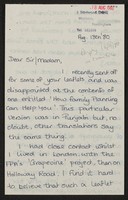 Aug. 13th '80
Dear Sir/Madam,
I recently sent off
for some of your leaflets and was
disappointed at the contents of
one entitled 'How Family Planning
Can Help You'. This particular
version was in Punjabi but, no
doubt, other translations say
the same thing.
I had close contact whilst
I lived in London with the
FPA's 'Grapevine' project, then on
Holloway Road. I find it hard
to believe that such a leaflet